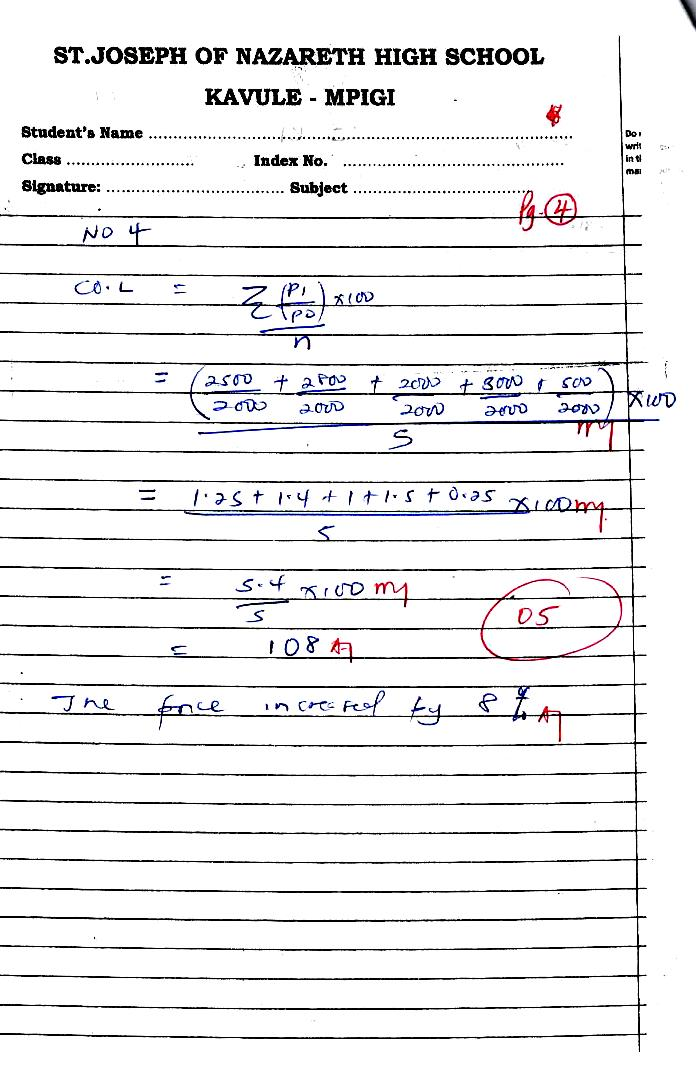 ST.JOSEPH OF NAZARETH HIGH SCHOOL
KAVULE - MPIGI
Student's Name ..............................................................................
Class ........................ Index No. ..........................................
Signature: .................................. Subject ................................
Do
writ
in tl
mar
Pg. 4
NO 4
CO.L = Σ (P1/P0) ×100 / n
= (2500/2000 + 2800/2000 + 2000/2000 + 3000/2000 + 500/2000) / 5 ×100 m1
= 1.25 + 1.4 + 1 + 1.5 + 0.25 / 5 ×100 m1
= 5.4/5 ×100 m1
05
= 108 A1
The price increased by 8% A1